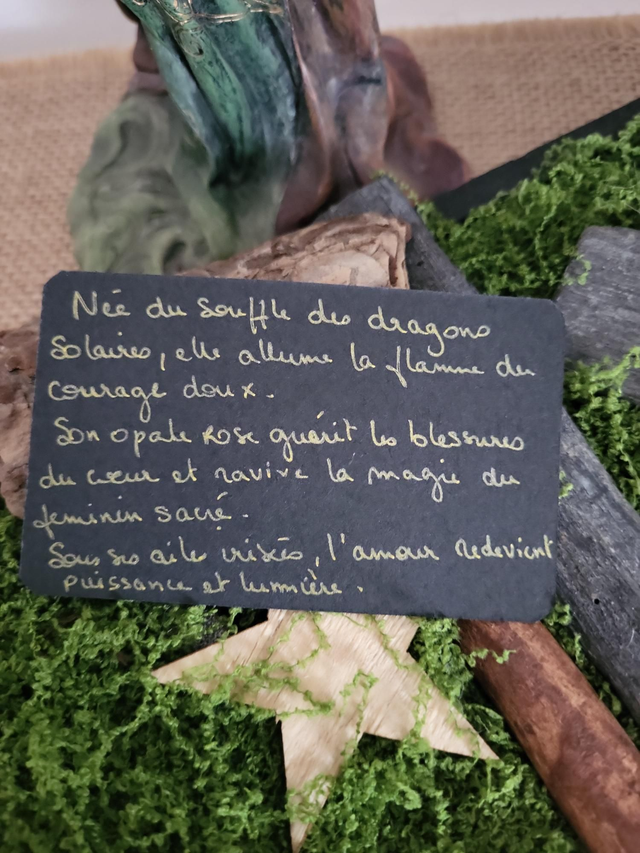 Née du souffle des dragons
solaires, elle allume la flamme du
courage doux.
Son opale rose guérit les blessures
du cœur et ravive la magie du
féminin sacré.
Sous ses ailes irisées, l'amour redevient
puissance et lumière.